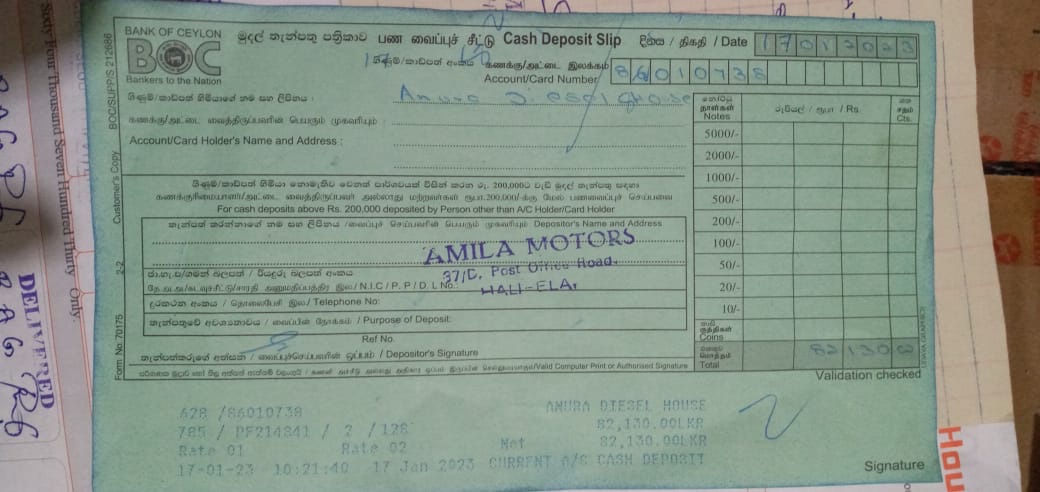 BANK OF CEYLON
BOC
Bankers to the Nation
මුදල් තැන්පතු පත්‍රිකාව பண வைப்புச் சீட்டு Cash Deposit Slip
දිනය / திகதி / Date 17012023
ගිණුම්/කාඩ්පත් අංකය கணக்கு/அட்டை இலக்கம்
Account/Card Number 86010738
ගිණුම්/කාඩ්පත් හිමියාගේ නම සහ ලිපිනය : Anura Diesel House
கணக்கு/அட்டை வைத்திருப்பவரின் பெயரும் முகவரியும் :
Account/Card Holder's Name and Address :
ගිණුම්/කාඩ්පත් හිමියා නොමැතිව වෙනත් පාර්ශවයක් විසින් කරන රු. 200,000ට වැඩි මුදල් තැන්පතු සඳහා
கணக்குரிமையாளர்/அட்டை வைத்திருப்பவர் அல்லாது மற்றவர்கள் ரூபா.200,000/-க்கு மேல் பணவைப்புச் செய்பவை
For cash deposits above Rs. 200,000 deposited by Person other than A/C Holder/Card Holder
තැන්පත් කරන්නාගේ නම සහ ලිපිනය /வைப்புச் செய்பவரின் பெயரும் முகவரியும் Depositor's Name and Address
AMILA MOTORS
37/C, Post Office Road.
HALI-ELA.
ජා.හැ.ප/ගමන් බලපත්‍ර / රියදුරු බලපත්‍ර අංකය
தே.அ.அ/கடவுச்சீட்டு/சாரதி அனுமதிப்பத்திர இல/ N.I.C / P. P / D. L No.:
දුරකථන අංකය / தொலைபேசி இல/ Telephone No:
තැන්පතුවේ අවශ්‍යතාවය / வைப்பின் நோக்கம் / Purpose of Deposit:
Ref No.
තැන්පත්කරුගේ අත්සන / வைப்புச்செய்பவரின் ஒப்பம் / Depositor's Signature
/Valid Computer Print or Authorised Signature
නෝට්ටු
நாணயத்தாள்கள்
Notes
රුපියල් / ரூபா / Rs.
ශත
சதம்
Cts.
5000/-
2000/-
1000/-
500/-
200/-
100/-
50/-
20/-
10/-
කාසි
குத்திகள்
Coins
එකතුව
மொத்தம்
Total
82130
Validation checked
628 /86010738
785 / PF214841 / 2 /128
Rate 01 Rate 02
ANURA DIESEL HOUSE
82,130.00LKR
Net 82,130.00LKR
17-01-23 10:21:40 17 Jan 2023 CURRENT A/C CASH DEPOSIT
Signature
BOC/SLIPP/S 212686
Customer's Copy
2-2
Form No. 70175
Sixty Four Thousand Seven Hundred Thirty Only.
DELIVERED
Hou